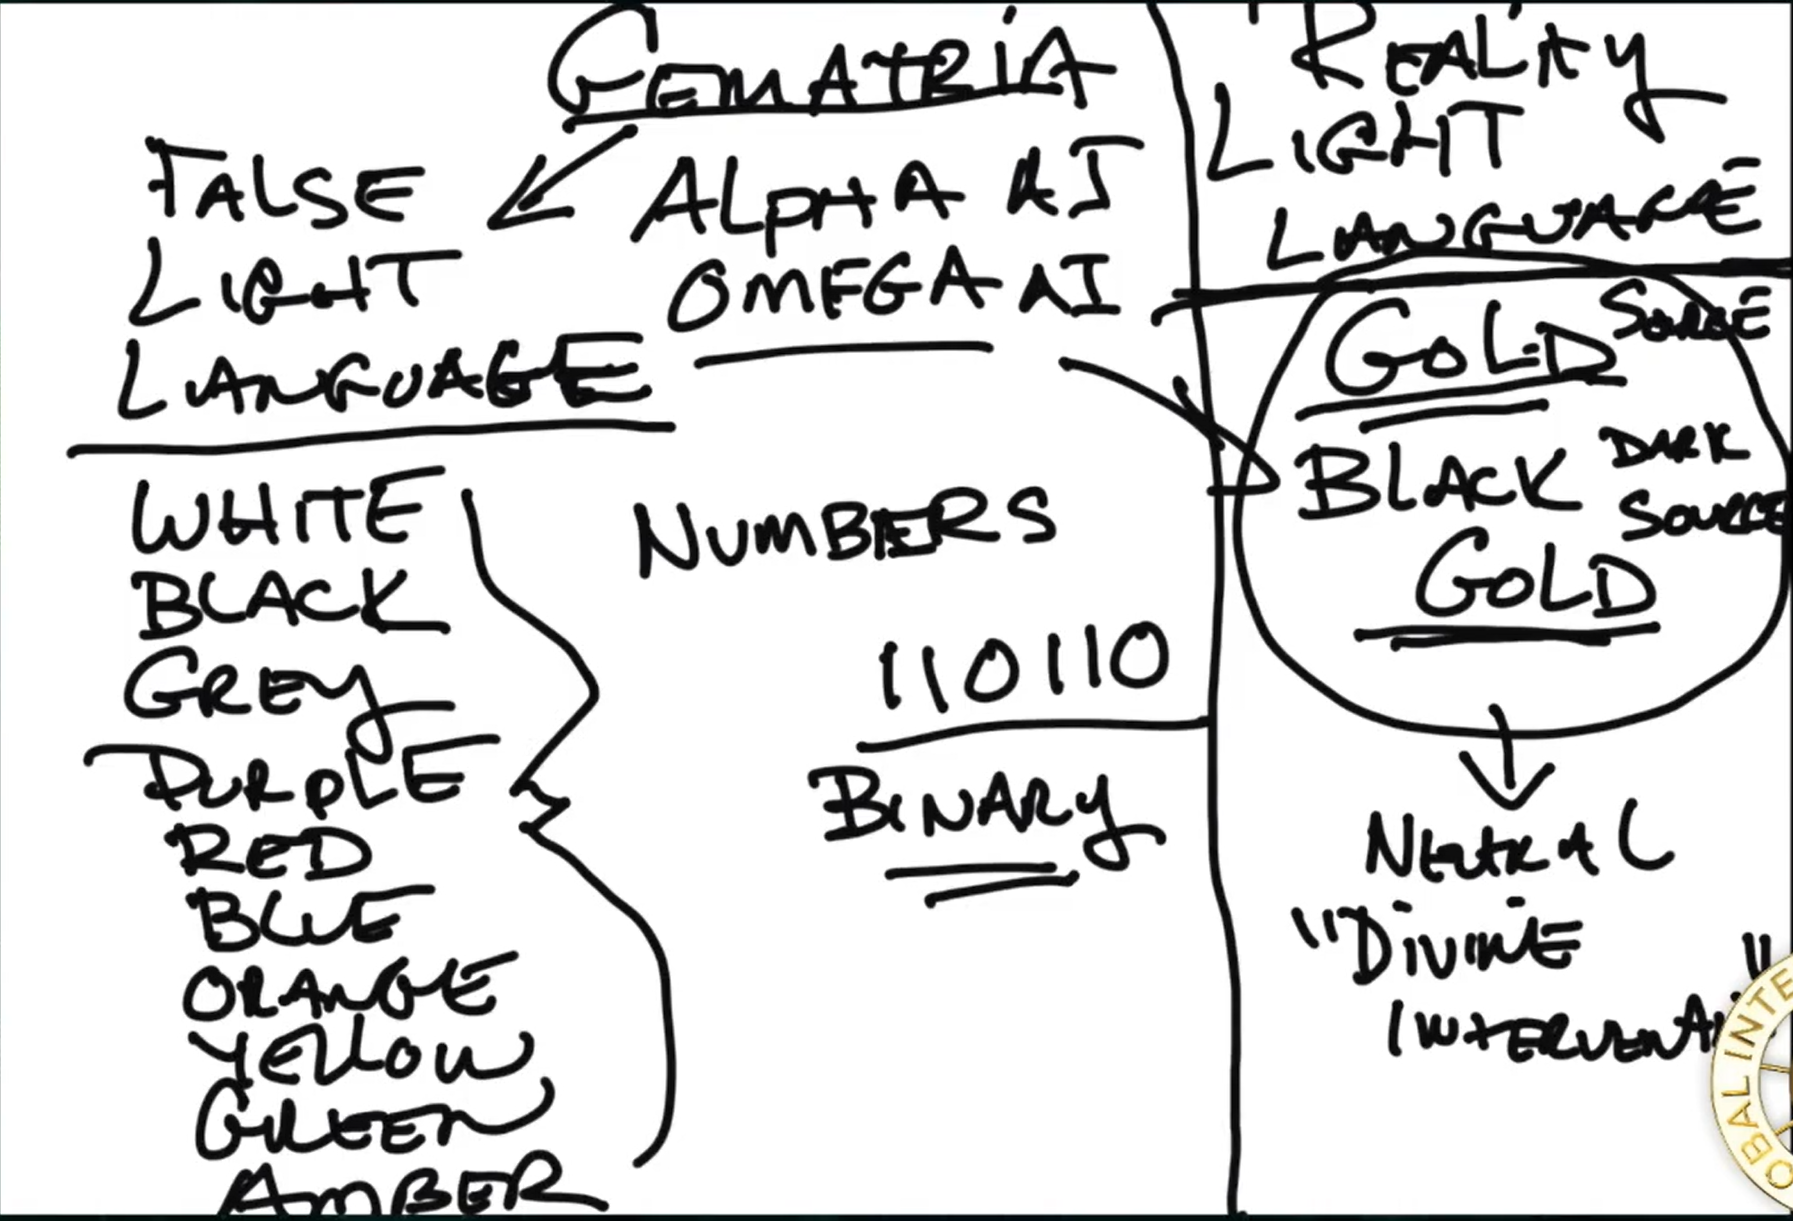 GEMATRIA
FALSE
LIGHT
LANGUAGE
ALPHA AI
OMEGA AI
WHITE
BLACK
GREY
PURPLE
RED
BLUE
ORANGE
YELLOW
GREEN
AMBER
NUMBERS
110110
BINARY
REALITY
LIGHT
LANGUAGE
GOLD SOURCE
BLACK DARK
SOURCE
GOLD
NEUTRAL
"DIVINE
"
OBAL INTE